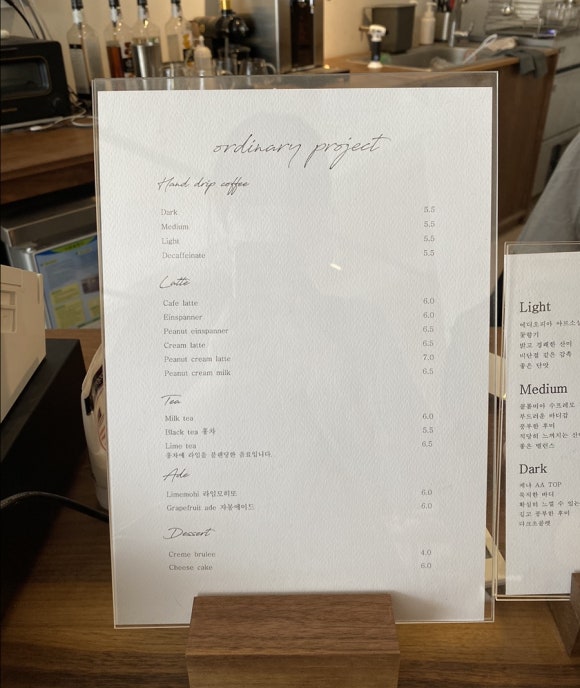 ordinary project
Hand drip coffee
Dark 5.5
Medium 5.5
Light 5.5
Decaffeinate 5.5
Latte
Cafe latte 6.0
Einspanner 6.0
Peanut einspanner 6.5
Cream latte 6.5
Peanut cream latte 7.0
Peanut cream milk 6.5
Tea
Milk tea 6.0
Black tea 홍차 5.5
Lime tea 6.5
홍차에 라임을 블랜딩한 음료입니다.
Ade
Limemohi 라임모히또 6.0
Grapefruit ade 자몽에이드 6.0
Dessert
Creme brulee 4.0
Cheese cake 6.0
Light
에티오피아
꽃향기
밝고 경쾌한 산미
비단결 같은 감촉
좋은 단맛
Medium
콜롬비아 수프레모
부드러운 바디감
풍부한 후미
적당히 느껴지는
좋은 밸런스
Dark
케냐 AA TOP
묵직한 바디
확실히 느낄 수 있는
깊고 풍부한 후미
다크초콜렛